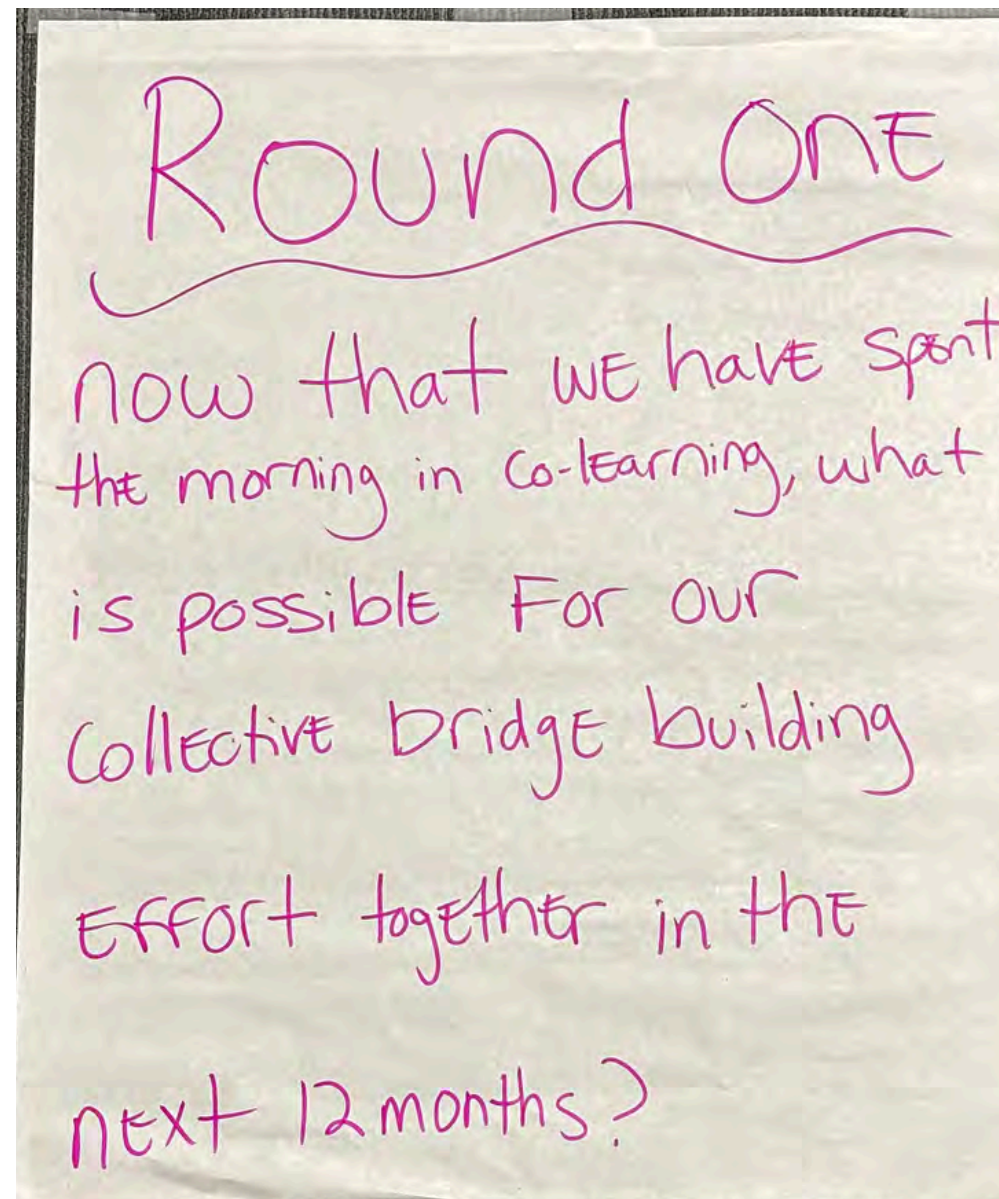 Round One
now that we have spent
the morning in co-learning, what
is possible For our
Collective bridge building
Effort together in the
next 12 months?